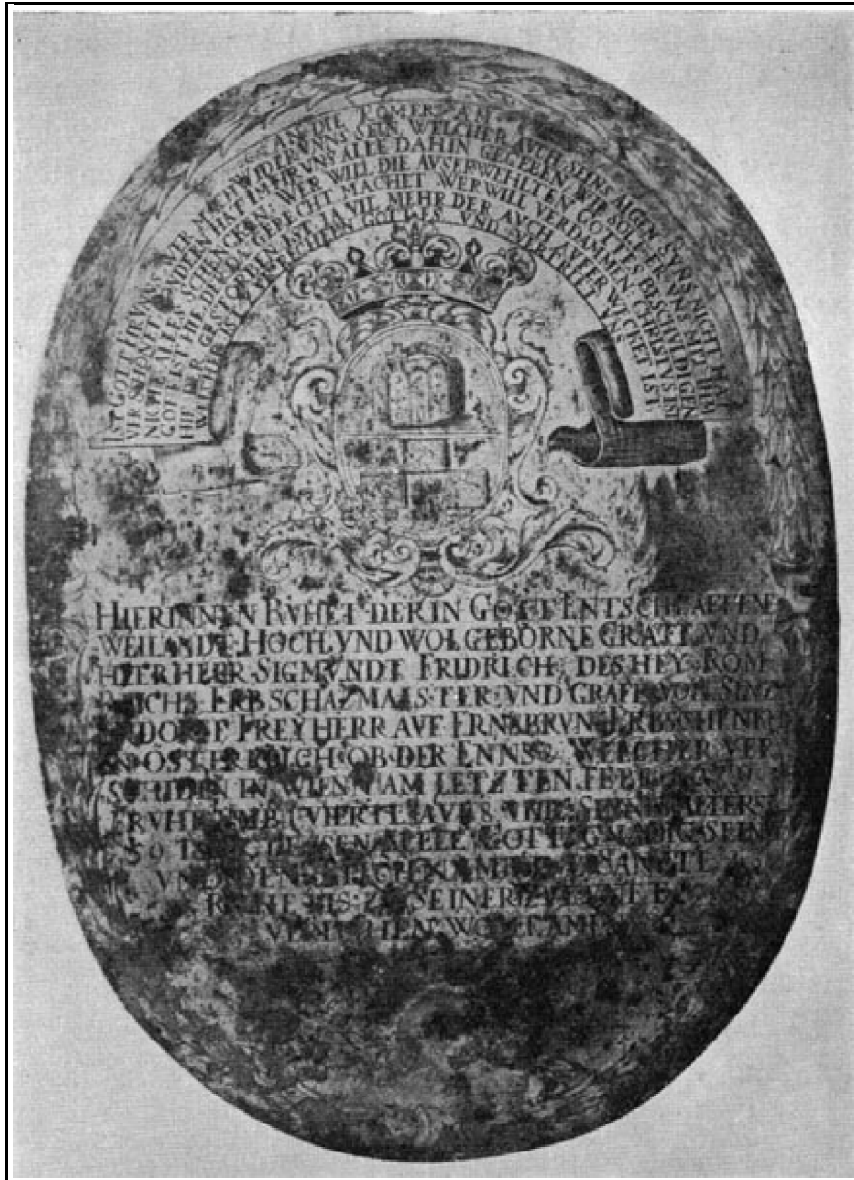 AN DIE RÖMER AN
IST GOTT FIR VNNS WER MAG WIDER VNNS SEIN WELCHER AVCH SEINS AIGEN SVNS NICHT HAT
VERSCHONET SONDERN HAT IHN FIR VNS ALLE DAHIN GEGEBEN WIE SOLT ER VNS MIT IHM
NICHT ALLES SCHENCKEN WER WILL DIE AVSERWEHLTEN GOTTES BESCHVLDIGEN
GOTT IST HIE DER DA GERECHT MACHET WER WILL VERDAMMEN CHRISTVS IST
HIE DER GESTORBEN IST JA VIL MEHR DER AVCH AVFERWICKET IST
WELCHER IST ZVR RECHTEN GOTTES VND VERTRIT VNS
HIERINNEN RVHET DER IN GOTT ENTSCHLAFFENE
WEILANDT HOCH VND WOLGEBORNE GRAFF VND
HERR HERR SIGMVNDT FRIDRICH DES HEY ROM
REICHS ERBSCHAZMAISTER VND GRAFF VON SINZ
ENDORF FREYHERR AVF ERNSBRVN ERBSCHENKH
IN ÖSTERREICH OB DER ENNS WELCHER VER
SCHIDEN IN WIENN AM LETZTEN FEBR
FRVHE VMB VIERTL AVF 8 VHR SEINES ALTERS
59 GOTT GNEDIG SEIN
VND DEN SANFTE
RVHE BIS ZV SEINER ZVKVNFT
VERLEIHEN WOLLE AMEN